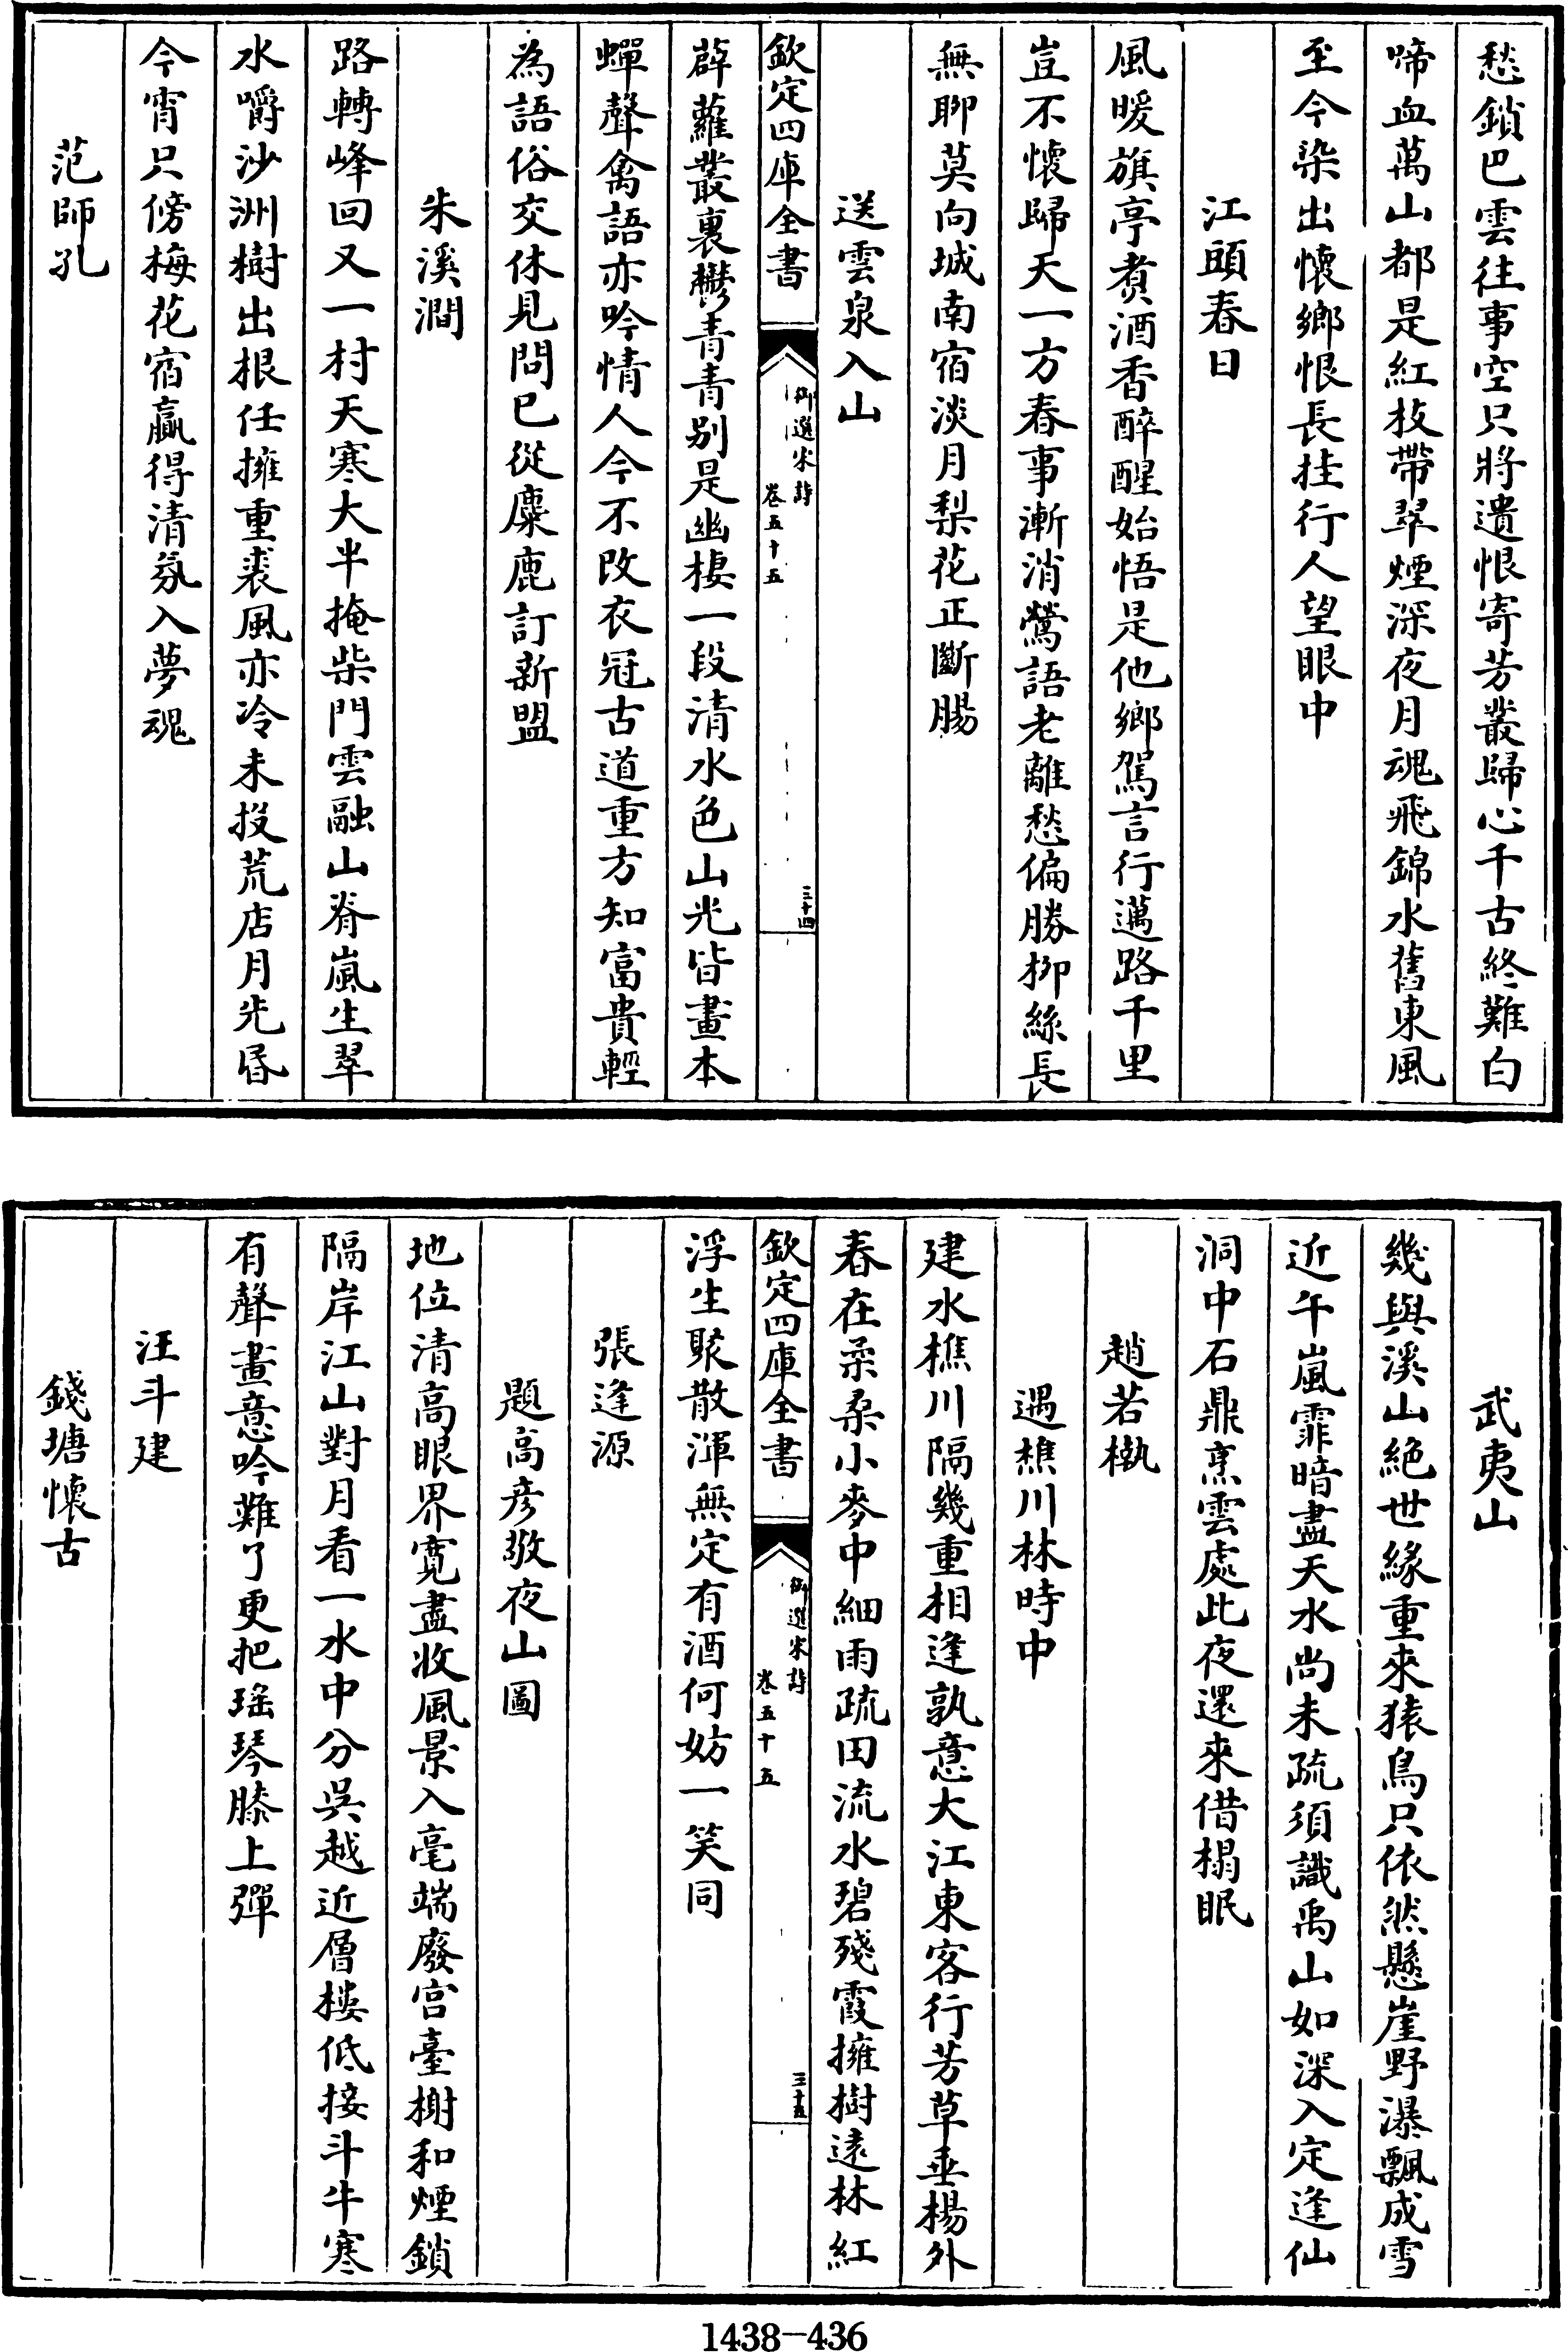 愁鎖巴雲往事空只將遺恨寄芳叢歸心千古終難白
啼血萬山都是紅枝帶翠煙深夜月魂飛錦水舊東風
至今染出懷鄉恨長挂行人望眼中
江頭春日
風暖旗亭煑酒香醉醒始悟是他鄉駕言行邁路千里
豈不懷歸天一方春事漸消鶯語老離愁偏勝柳絲長
無聊莫向城南宿淡月梨花正斷腸
送雲泉入山
欽定四庫全書
御選宋詩
卷五十五
三十四
薜蘿叢裏鬱青青别是幽棲一段清水色山光皆畫本
蟬聲禽語亦吟情人今不改衣冠古道重方知富貴輕
為語俗交休見問已從麋鹿訂新盟
朱溪澗
路轉峰回又一村天寒大半掩柴門雲融山脊嵐生翠
水嚼沙洲樹出根任擁重裘風亦冷未投荒店月先昏
今宵只傍梅花宿贏得清氛入夢魂
范師孔
武夷山
幾與溪山絶世緣重來猿鳥只依然懸崖野瀑飄成雪
近午嵐霏暗盡天水尚未疏須識禹山如深入定逢仙
洞中石鼎烹雲處此夜還來借榻眠
趙若槸
遇樵川林時中
建水樵川隔幾重相逢孰意大江東客行芳草垂楊外
春在柔桑小麥中細雨疏田流水碧殘霞擁樹遠林紅
欽定四庫全書
御選宋詩
卷五十五
三十五
浮生聚散渾無定有酒何妨一笑同
張逢源
題高彦敬夜山圖
地位清高眼界寛盡收風景入毫端廢宫臺榭和煙鎖
隔岸江山對月看一水中分吳越近層樓低接斗牛寒
有聲畫意吟難了更把瑤琴膝上彈
汪斗建
錢塘懷古
1438-436